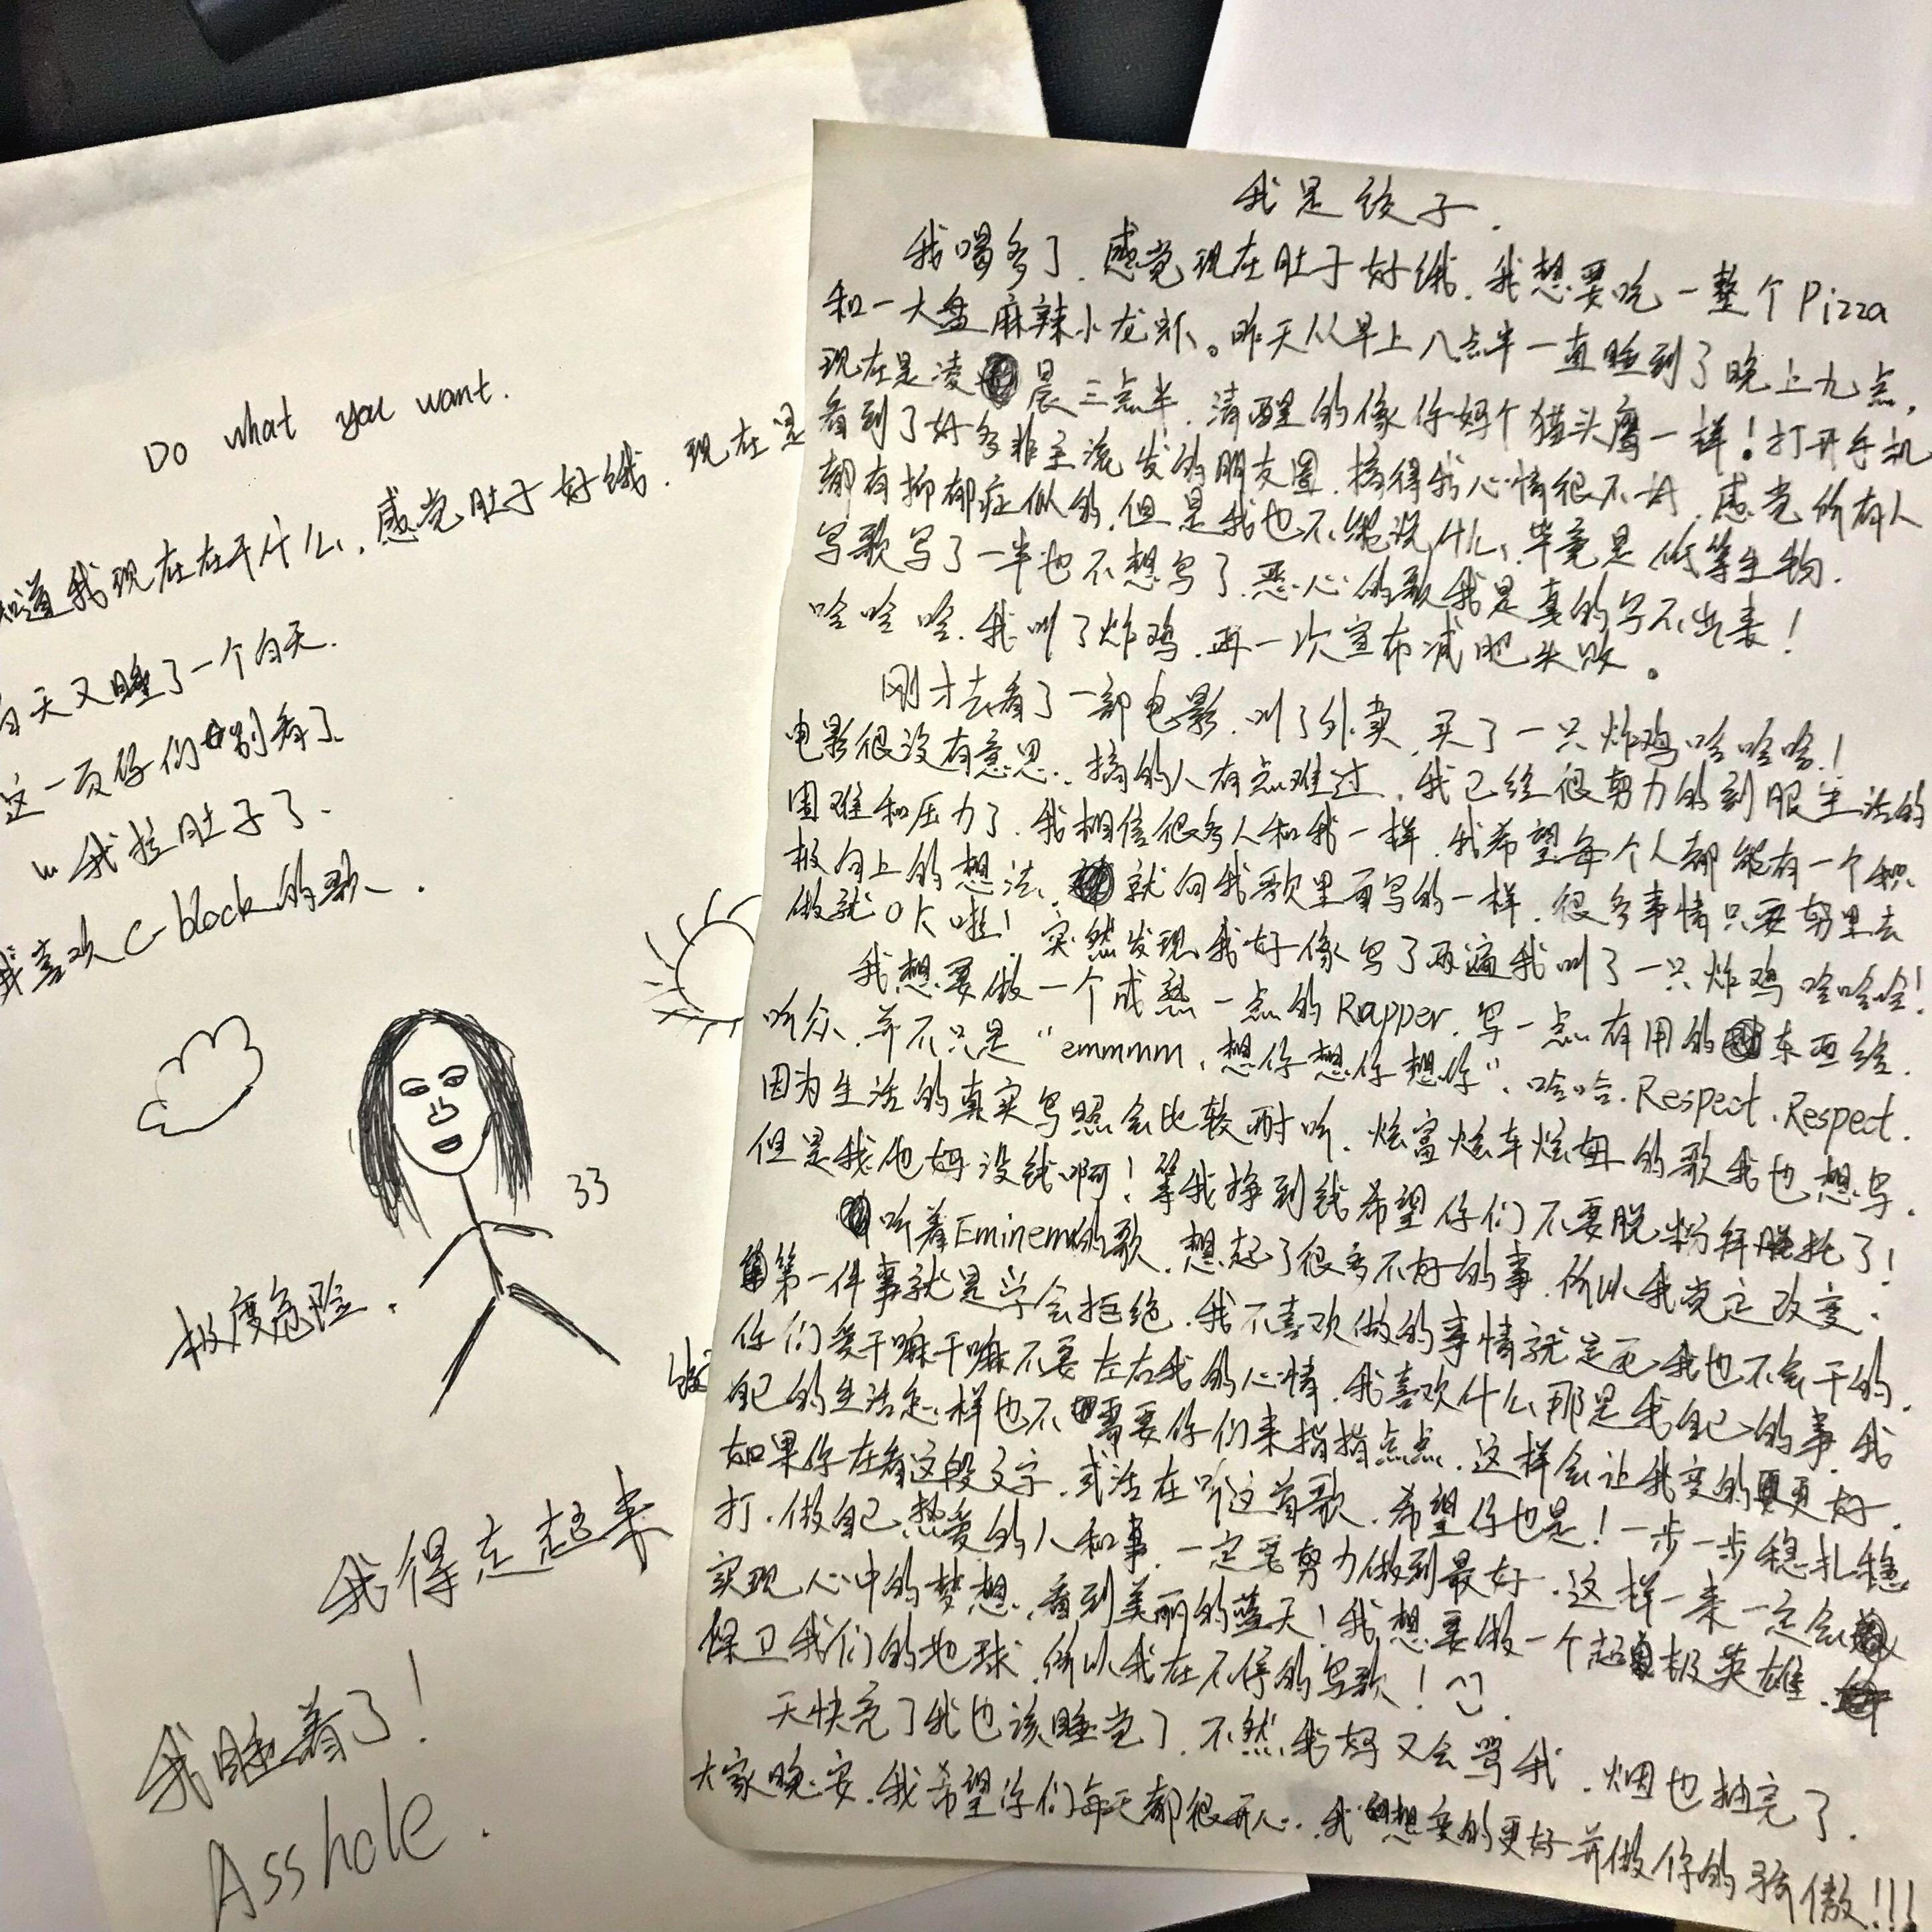 Do what you want.
知道我现在在干什么,感觉肚子好饿.现在是
白天又睡了一个白天.
这一页你们别看了
我拉肚子了.
我喜欢C-block的歌.
33
极度危险.
我得走起来
我睡着了!
Asshole.
我是饺子.
我喝多了.感觉现在肚子好饿.我想要吃一整个Pizza
和一大盘麻辣小龙虾。昨天从早上八点半一直睡到了晚上九点,
现在是凌晨三点半.清醒的像你妈个猫头鹰一样!打开手机
看到了好多非主流发的朋友圈.搞得我心情很不好.感觉所有人
都有抑郁症似的.但是我也不能说什么、毕竟是低等生物.
写歌写了一半也不想写了.恶心的歌我是真的写不出来!
哈哈哈.我叫了炸鸡.再一次宣布减肥失败。
刚才去看了一部电影.叫了外卖.买了一只炸鸡哈哈哈!
电影很没有意思.搞的人有点难过.我已经很努力的到服生活的
困难和压力了.我相信很多人和我一样.我希望每个人都能有一个积
极向上的想法.就向我歌里面写的一样.很多事情只要努里去
做就OK啦!突然发现我好像写了两遍我叫了一只炸鸡哈哈哈!
我想要做一个成熟一点的Rapper.写一点有用的东西给
听众.并不只是"emmmm,想你想你想你".哈哈.Respect.Respect.
因为生活的真实写照会比较耐听.炫富炫车炫妞的歌我也想写.
但是我他妈没钱啊!等我挣到钱希望你们不要脱粉拜托了!
听着Eminem的歌.想起了很多不好的事.所以我觉定改变.
第一件事就是学会拒绝.我不喜欢做的事情就是死我也不会干的.
你们爱干嘛干嘛不要左右我的心情.我喜欢什么那是我自己的事.我
自己的生活怎样也不需要你们来指指点点.这样会让我变的更好.
如果你在看这段文字.或活在听这首歌.希望你也是!一步一步稳扎稳
打.做自己热爱的人和事.一定要努力做到最好.这样一来一定会
实现心中的梦想.看到美丽的蓝天!我想要做一个超极英雄.
保卫我们的地球.所以我在不停的写歌!
天快亮了我也该睡觉了.不然我妈又会骂我.烟也抽完了.
大家晚安.我希望你们每天都很开心.我想变的更好并做你的骄傲!!!